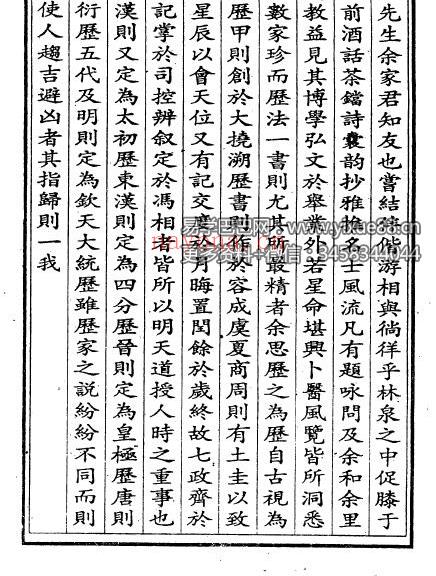 先生余家君知友也嘗結偕游相與徜徉乎林泉之中促膝于
前酒話茶鐺詩囊韵抄雅擔名士風流凡有題咏問及余和余里
教益見其博學弘文於舉業外若星命堪輿卜醫風覽皆所洞悉
數家珍而歷法一書則尤其所最精者余思歷之為歷自古視為
歷甲則創於大撓溯歷書則作於容成虞夏商周則有土圭以致
星辰以會天位又有記交度於月晦置閏餘於歲終故七政齊於
記掌於司控辨叙定於馮相者皆所以明天道授人時之重事也
漢則又定為太初歷東漢則定為四分歷晉則定為皇極歷唐則
衍歷五代及明則定為欽天大統歷雖歷家之說紛紛不同而則
使人趨吉避凶者其指歸則一我